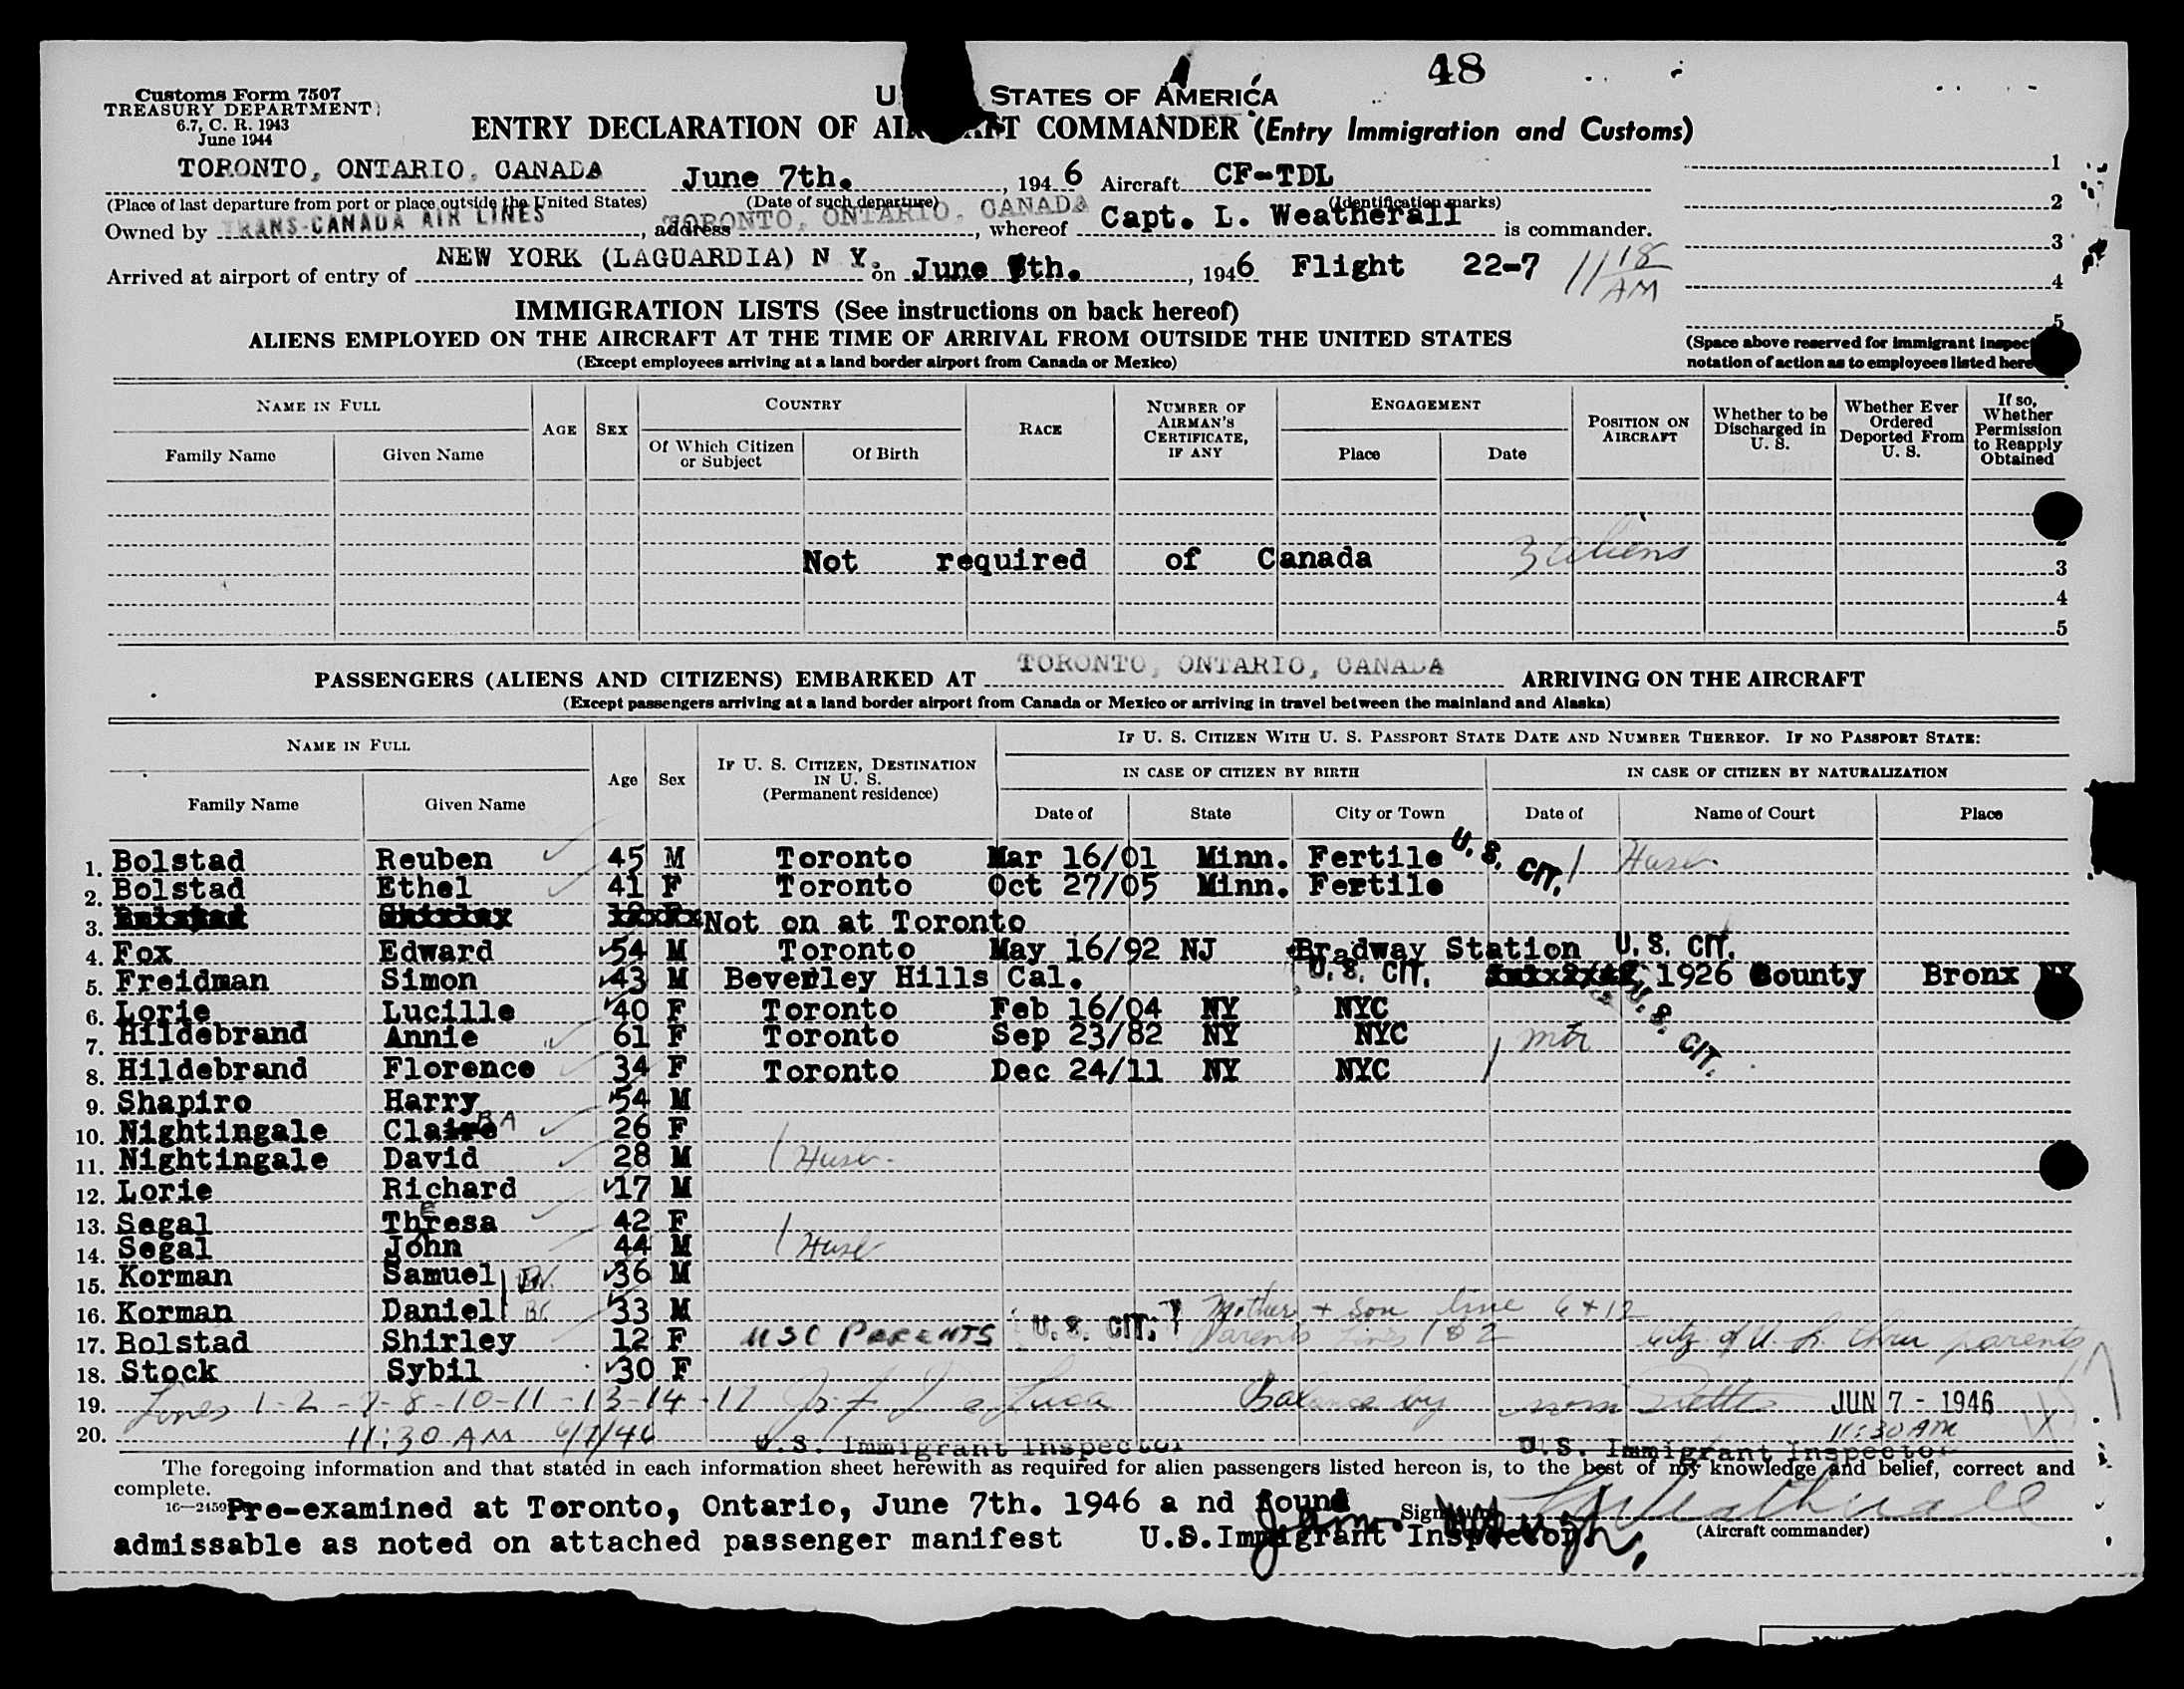 48
Customs Form 7507
TREASURY DEPARTMENT
6.7, C. R. 1943
June 1944
U STATES OF AMERICA
ENTRY DECLARATION OF AI T COMMANDER (Entry Immigration and Customs)
TORONTO, ONTARIO, CANADA June 7th. , 194 6 Aircraft CF-TDL 1
(Place of last departure from port or place outside the United States) (Date of such departure) (Identification marks) 2
Owned by TRANS-CANADA AIR LINES , address TORONTO, ONTARIO, CANADA , whereof Capt. L. Weatherall is commander.
3
Arrived at airport of entry of NEW YORK (LAGUARDIA) N Y. on June 7th. , 1946 Flight 22-7 11 18 AM 4
5
IMMIGRATION LISTS (See instructions on back hereof)
ALIENS EMPLOYED ON THE AIRCRAFT AT THE TIME OF ARRIVAL FROM OUTSIDE THE UNITED STATES
(Except employees arriving at a land border airport from Canada or Mexico)
(Space above reserved for immigrant inspec
notation of action as to employees listed here
NAME IN FULL AGE SEX COUNTRY RACE NUMBER OF AIRMAN'S CERTIFICATE, IF ANY ENGAGEMENT POSITION ON AIRCRAFT Whether to be Discharged in U. S. Whether Ever Ordered Deported From U. S. If so, Whether Permission to Reapply Obtained
Family Name Given Name Of Which Citizen or Subject Of Birth Place Date
Not required of Canada 3 aliens
3
4
5
PASSENGERS (ALIENS AND CITIZENS) EMBARKED AT TORONTO, ONTARIO, CANADA ARRIVING ON THE AIRCRAFT
(Except passengers arriving at a land border airport from Canada or Mexico or arriving in travel between the mainland and Alaska)
NAME IN FULL Age Sex IF U. S. CITIZEN, DESTINATION IN U. S. (Permanent residence) IF U. S. CITIZEN WITH U. S. PASSPORT STATE DATE AND NUMBER THEREOF. IF NO PASSPORT STATE:
IN CASE OF CITIZEN BY BIRTH IN CASE OF CITIZEN BY NATURALIZATION
Family Name Given Name Date of State City or Town Date of Name of Court Place
1. Bolstad Reuben 45 M Toronto Mar 16/01 Minn. Fertile U. S. CIT. Husb.
2. Bolstad Ethel 41 F Toronto Oct 27/05 Minn. Fertile
3. Bolstad Shirley Not on at Toronto
4. Fox Edward 54 M Toronto May 16/92 NJ Bradway Station U. S. CIT.
5. Freidman Simon 43 M Beverley Hills Cal. U. S. CIT. 1926 County Bronx NY
6. Lorie Lucille 40 F Toronto Feb 16/04 NY NYC U. S. CIT.
7. Hildebrand Annie 61 F Toronto Sep 23/82 NY NYC mtr
8. Hildebrand Florence 34 F Toronto Dec 24/11 NY NYC
9. Shapiro Harry 54 M
10. Nightingale Claire RA 26 F
11. Nightingale David 28 M Husb.
12. Lorie Richard 17 M
13. Segal Thresa E 42 F
14. Segal John 44 M Husb
15. Korman Samuel 36 M
16. Korman Daniel 33 M Mother + Son line 6 + 12
17. Bolstad Shirley 12 F USC PARENTS U. S. CIT. Parents Lines 1 & 2 City of U. S. thru parents
18. Stock Sybil 30 F
19. Lines 1-2-7-8-10-11-13-14-17 Balance by JUN 7 - 1946
20. 11:30 AM 6/7/46 U.S. Immigrant Inspector 11:30 AM U.S. Immigrant Inspector
The foregoing information and that stated in each information sheet herewith as required for alien passengers listed hereon is, to the best of my knowledge and belief, correct and
complete.
16—2459 Pre-examined at Toronto, Ontario, June 7th. 1946 a nd found
Sign
admissable as noted on attached passenger manifest U.S.Immigrant Inspector
(Aircraft commander)